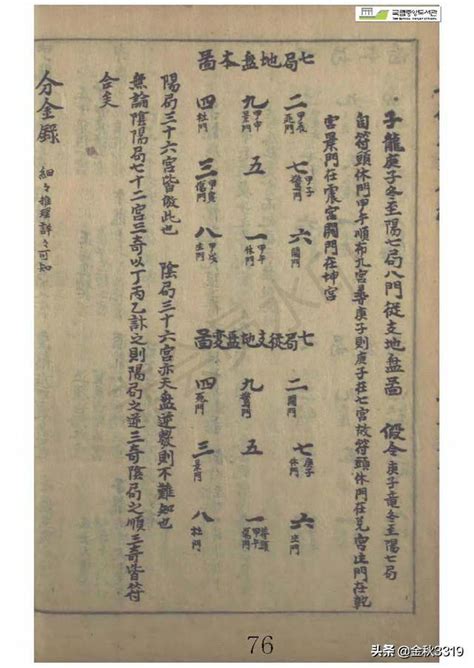 국립중앙도서관
子龍庚子冬至陽七局八門從支地盤啚　假令庚子竜冬至陽七局
自符頭休門甲午順布九宮尋庚子則庚子在七宮故符頭休門在兌宮生門在乾
宮景門在震宮開門在坤宮
七局地盤本啚
二 甲辰 死門
七 甲子 驚門
六 開門
九 甲申 景門
五
一 甲午 休門
四 杜門
三 甲寅 傷門
八 甲戌 生門
七局從支地盤變啚
二 開門
七 庚子 休門
六 生門
九 驚門
五
一 符頭 甲午 傷門
四 死門
三 景門
八 杜門
陽局三十六宮皆倣此也　陰局三十六宮亦天盤逆數則不難知也
無論陰陽局七十二宮三奇以丁丙乙計之則陽局之逆三奇陰局之順三奇皆符
合矣
分金錄 細々推理詳々可知
76
头条 @金秋3319